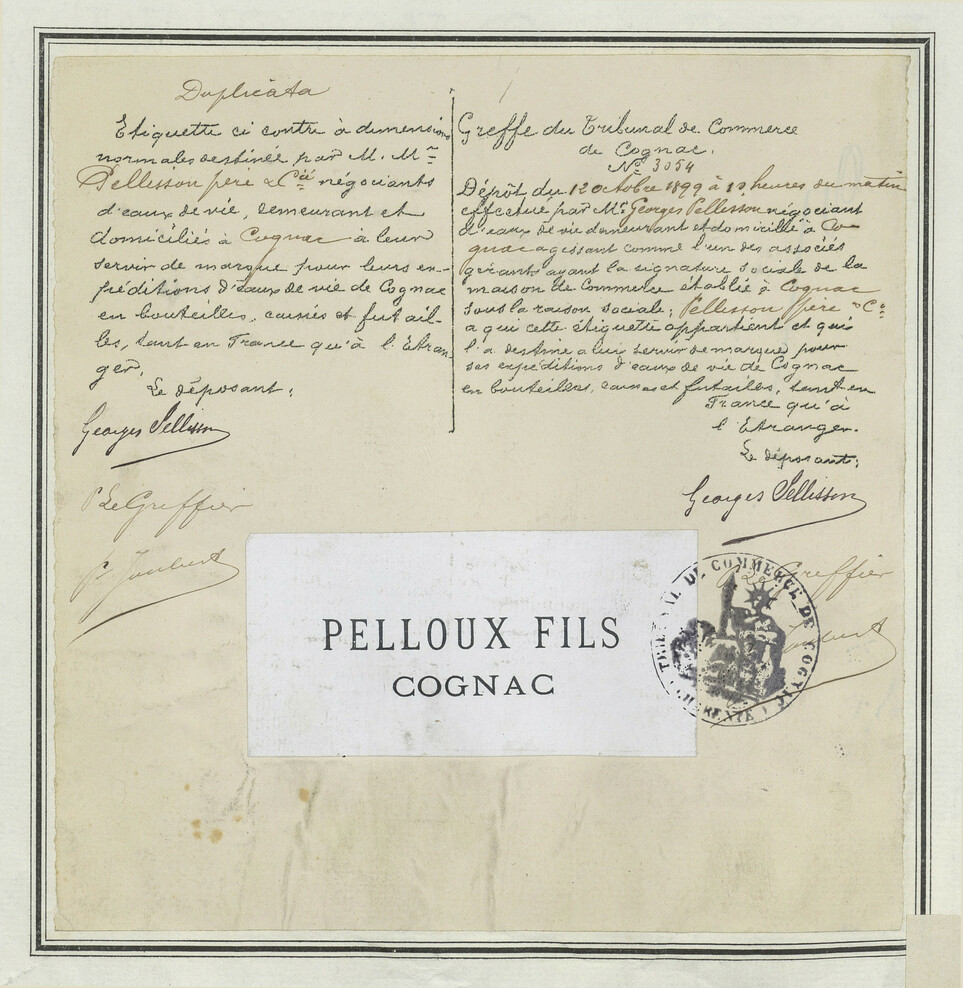 Duplicata
Etiquette ci contre à dimensions
normales destinée par M. Mrs
Pellisson père & Cie négociants
d'eaux de vie, demeurant et
domiciliés à Cognac à leur
servir de marque pour leurs ex-
péditions d'eaux de vie de Cognac
en bouteilles, caisses et futail-
les, tant en France qu'à l'Etran-
ger.
Le déposant:
Georges Pellisson
P Le Greffier
Joubert
Greffe du Tribunal de Commerce
de Cognac.
No 3054
Dépôt du 12 octobre 1899 à 10 heures du matin
effectué par Mr Georges Pellisson négociant
d'eaux de vie demeurant et domicilié à Co-
gnac agissant comme l'un des associés
gérants ayant la signature sociale de la
maison de Commerce établie à Cognac
sous la raison sociale; Pellisson père & Cie
a qui cette étiquette appartient et qui
l'a destine a lui servir de marque pour
ses expéditions d'eaux de vie de Cognac
en bouteilles, caisses et futailles, tant en
France qu'à
l'Etranger.
Le déposant:
Georges Pellisson
P Le Greffier
Joubert
PELLOUX FILS
COGNAC
TRIBUNAL DE COMMERCE DE COGNAC
(CHARENTE)